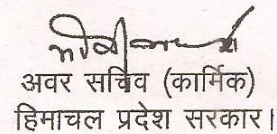 अवर सचिव (कार्मिक)
हिमाचल प्रदेश सरकार।